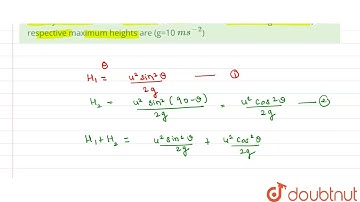 respective maximum heights are (g=10 ms⁻²)
θ
H₁ = u² sin²θ / 2g —— ①
H₂ = u² sin² (90-θ) / 2g = u² cos²θ / 2g —— ②
H₁ + H₂ = u² sin²θ / 2g + u² cos²θ / 2g
doubtnut